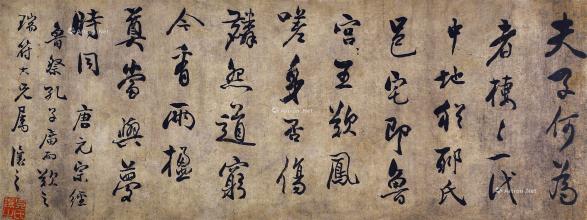 夫子何為
者棲々一代
中地猶郰氏
邑宅即魯
宮王歎鳳
嗟身否傷
麟怨道窮
今看兩楹
奠當與夢
時同 唐元宗經
魯祭孔子廟而歎之
瑞符大兄屬